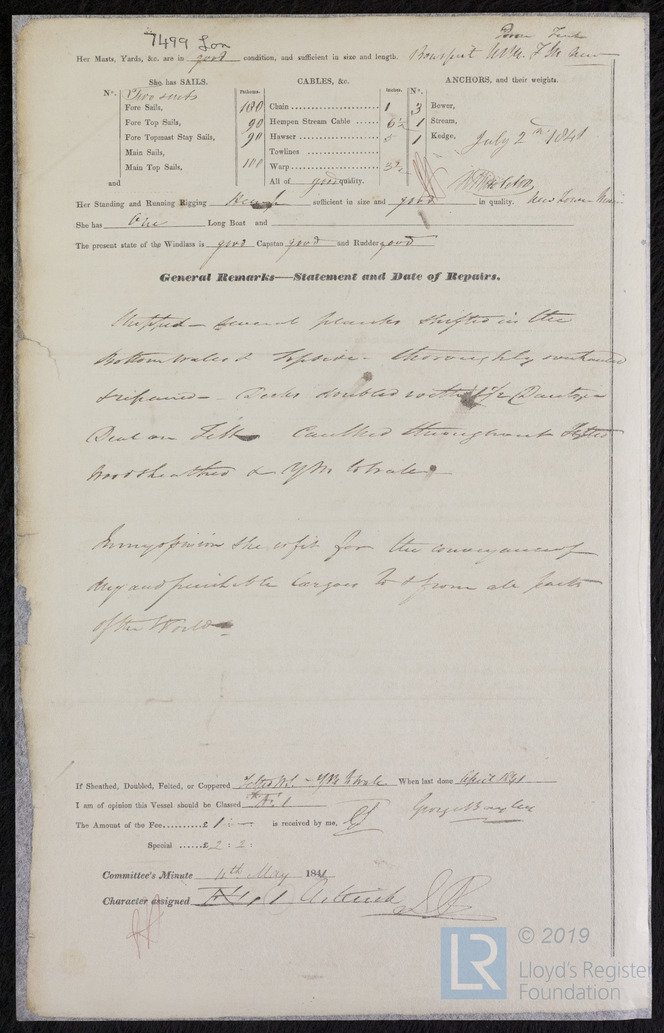 7499 Lon
Her Masts, Yards, &c. are in good condition, and sufficient in size and length. Bowsprit
She has SAILS.
CABLES, &c.
ANCHORS, and their weights.
N°.
Fathoms.
Inches.
N°.
Two suits
Fore Sails,
Fore Top Sails,
Fore Topmast Stay Sails,
Main Sails,
Main Top Sails,
and
100 Chain 1
90 Hempen Stream Cable 6½
90 Hawser 5
Towlines
100 Warp 3½
All of good quality.
3 Bower,
1 Stream,
1 Kedge,
July 2nd 1841
Her Standing and Running Rigging Hemp sufficient in size and good in quality.
She has One Long Boat and
The present state of the Windlass is good Capstan good and Rudder good
General Remarks—Statement and Date of Repairs.
Stripped – several planks shifted in the
Bottom Wales & Topsides – thoroughly overhauled
& repaired – Decks doubled with Dantzic
Deal on Felt Caulked throughout Felted
Wood sheathed & YM to Wales
In my opinion she is fit for the conveyance of
dry and perishable Cargoes to & from all parts
of the World
If Sheathed, Doubled, Felted, or Coppered YM to Wales When last done April 1841
I am of opinion this Vessel should be Classed
The Amount of the Fee £ 1 : – is received by me,
George Bayley
Special £ 2 : 2 :
Committee's Minute 4th May 1841
Character assigned
LR
© 2019
Lloyd's Register
Foundation